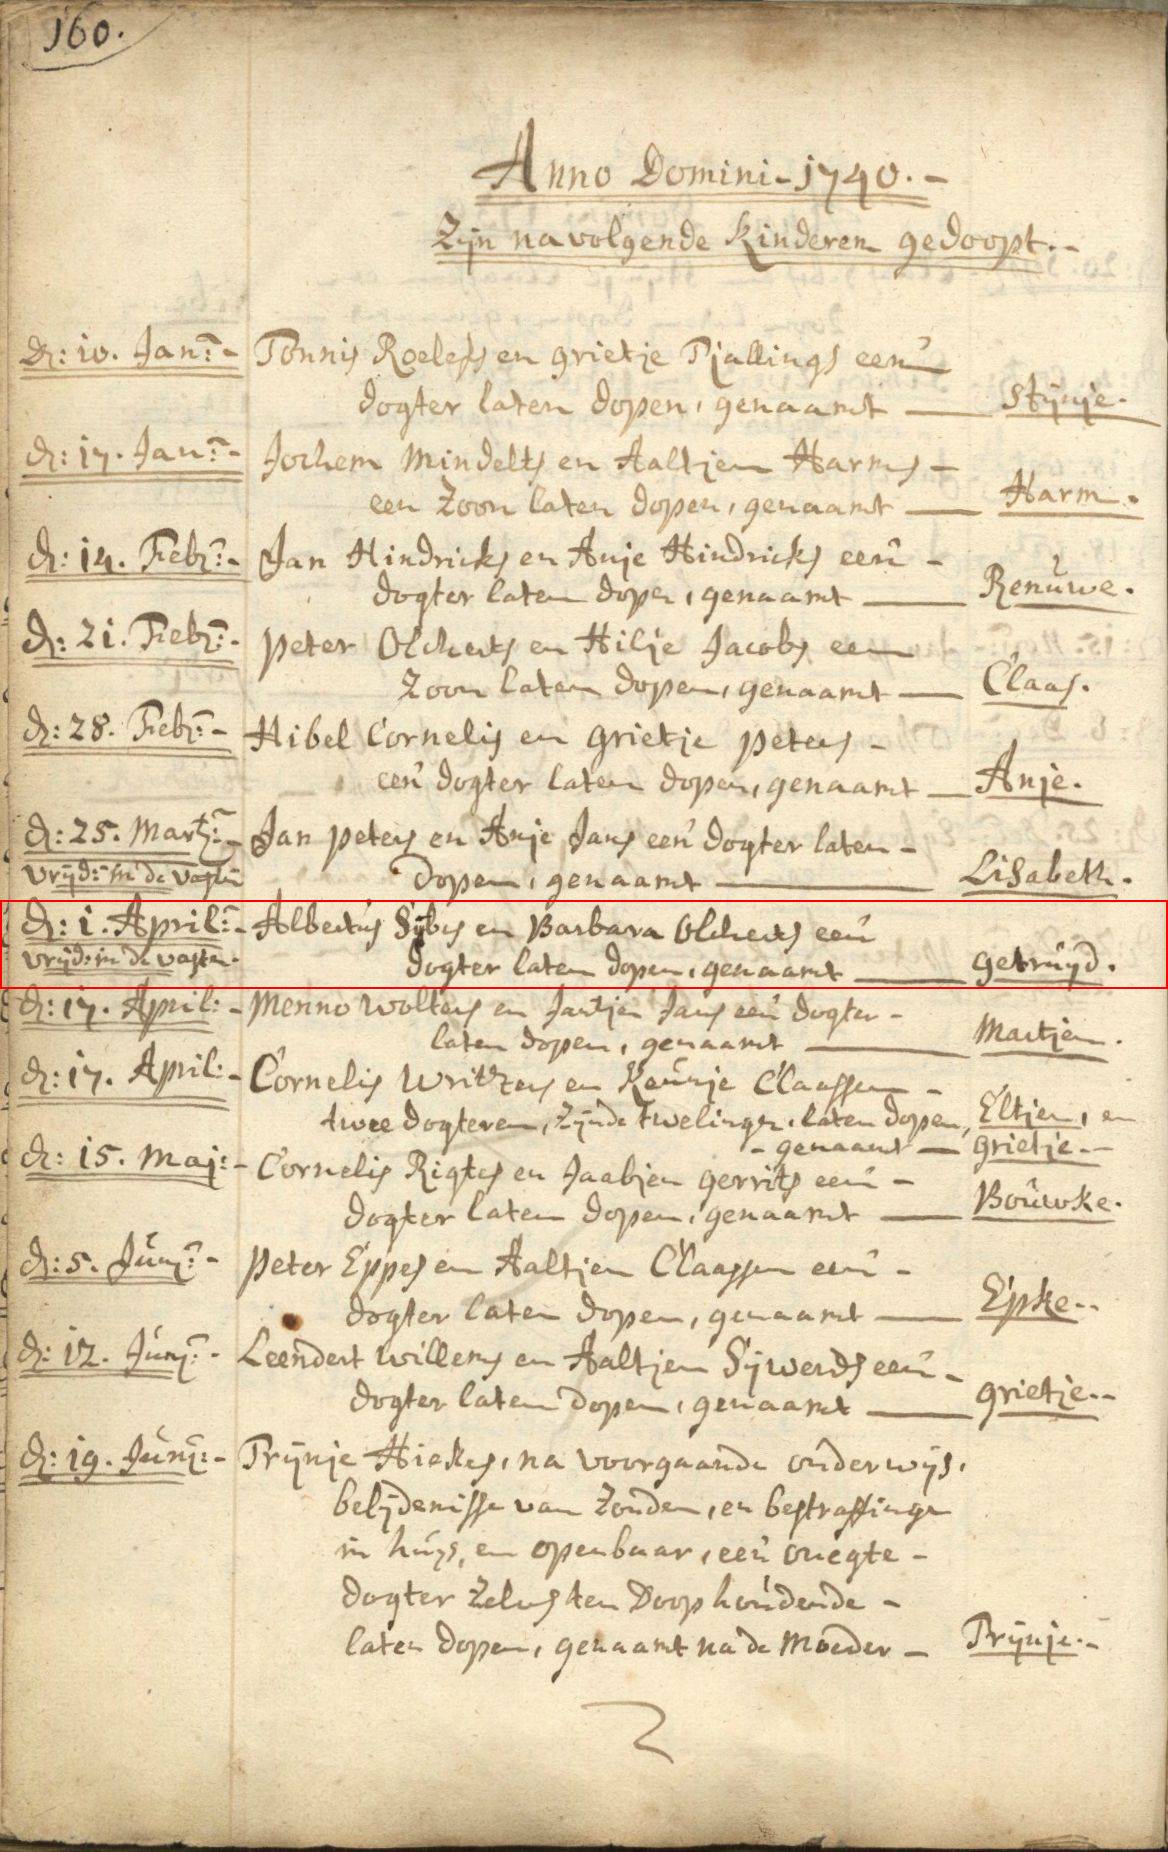 160.
Anno Domini - 1740. -
Zijn navolgende Kinderen gedoopt. -
d: 10. Jan: - Tonnis Roelefs en Grietje Tjallings een
dogter laten dopen, genaamt — Stijnje.
d: 17. Jan: - Jochem Mindelts en Aaltjen Harms -
een Zoon laten dopen, genaamt — Harm.
d: 14. Feb: - Jan Hindricks en Anje Hindricks een -
dogter laten dopen, genaamt — Renuwe.
d: 21. Feb: - Peter Olcherts en Hilje Jacobs een
Zoon laten dopen, genaamt — Claas.
d: 28. Feb: - Hibel Cornelis en Grietje Peters -
een dogter laten dopen, genaamt — Anje.
d: 25. Mart: - Jan Peters en Anje Jans een dogter laten -
vrijd: in de vasten dopen, genaamt — Lisabeth.
d: 1. April: - Albertus Sijbes en Barbara Olcherts een
vrijd: in de vasten. dogter laten dopen, genaamt — Getruijd.
d: 17. April: - Menno Wolters en Jantjen Jans een dogter -
laten dopen, genaamt — Martjen.
d: 17. April: - Cornelis Writzers en Keunje Claassen -
twee dogteren, zijnde twelingen, laten dopen, Eltjen, en
- genaamt — Grietje. -
d: 15. Maj: - Cornelis Rigtes en Jaabjen Gerrits een -
dogter laten dopen, genaamt — Bouwke.
d: 5. Junj: - Peter Eppes en Aaltjen Claassen een -
dogter laten dopen, genaamt — Epke. -
d: 12. Junj: - Leendert Willems en Aaltjen Sijwerds een -
dogter laten dopen, genaamt — Grietje. -
d: 19. Junj: - Trijnje Hiekes, na voorgaande onderwijs,
belijdenisse van Zonden, en bestraffinge
in huijs, en openbaar, een onegte -
dogter Zelvs ten Doop houdende -
laten dopen, genaamt na de Moeder - Trijnje. -